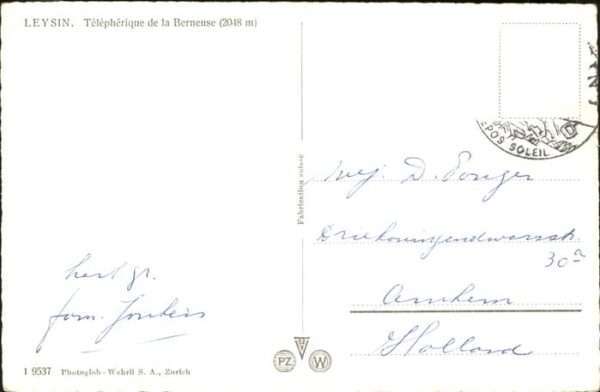 LEYSIN. Téléphérique de la Berneuse (2048 m)
EPOS SOLEIL
Fabrication suisse
Mej. D.
Driekoningendwarsstr.
30
Arnhem
Holland
hart. gr.
fam.
PZ
W
1 9537 Photoglob-Wehrli S. A., Zurich